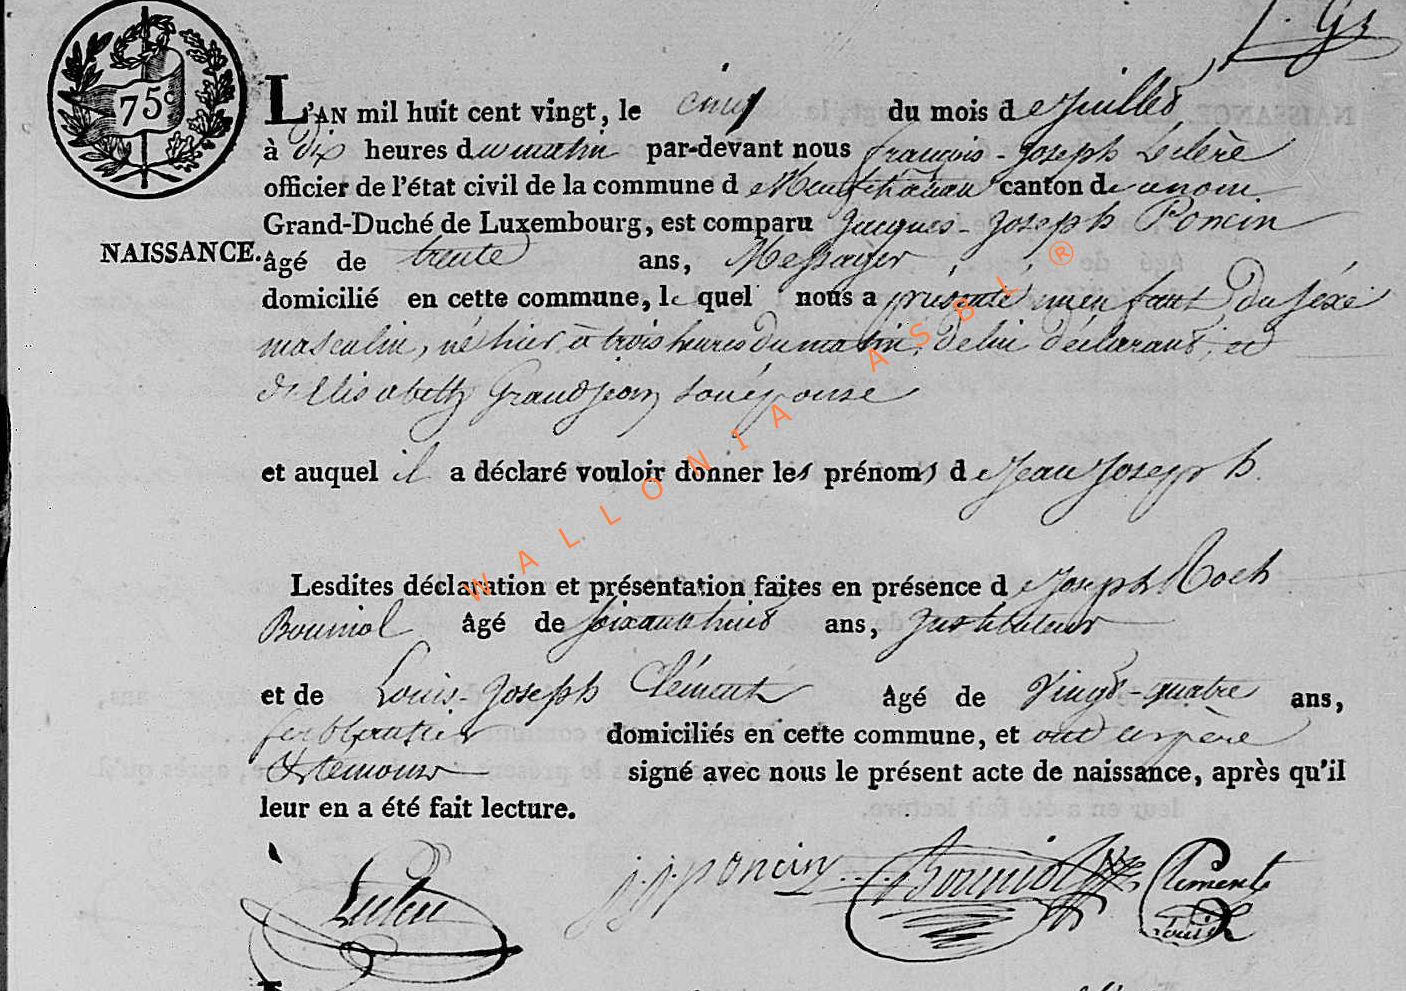 75c
L'AN mil huit cent vingt, le cinq du mois de Juillet
à Dix heures du matin par-devant nous françois-Joseph Leclère
officier de l'état civil de la commune de Neufchâteau canton de
Grand-Duché de Luxembourg, est comparu Jacques-Joseph Poncin
NAISSANCE. âgé de trente ans, Messager
domicilié en cette commune, lequel nous a présenté un enfant Du séxe
masculin, né hier à trois heures du matin, de lui déclarant, et
d'Elisabeth Grandjean son épouse
et auquel il a déclaré vouloir donner les prénoms de Jean Joseph
Lesdites déclaration et présentation faites en présence de Joseph Roch
Bourniol âgé de soixante huit ans, Instituteur
et de Louis-Joseph Clément âgé de Vingt-quatre ans,
ferblantier domiciliés en cette commune, et ont les père
& témoins signé avec nous le présent acte de naissance, après qu'il
leur en a été fait lecture.
J. J. poncin Clement
Louis
WALLONIA ASBL ®